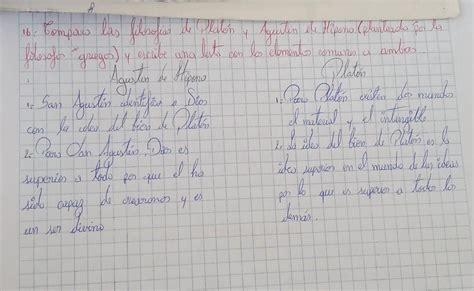 16- Compara las filosofías de Platón y Agustín de Hipona (planteada por la
filosofo griego) y escribe una lista con los elementos comunes a ambas.
Agustin de Hipona
1- San Agustín identifica a Dios
con la idea del bien de Platón
2- Para San Agustín, Dios es
superior a todo por que el ha
sido capaz de crearnos y es
un ser divino
Platón
1- Para Platón existen dos mundos
el material y el intangible
2- La idea del bien de Platón es la
idea superior en el mundo de las ideas
por lo que es superior a todo lo
demás.